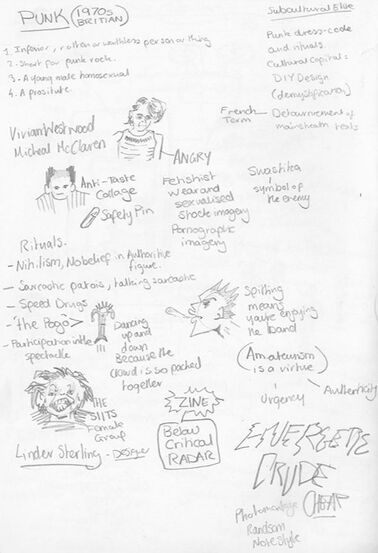 PUNK (1970s
BRITIAN)
1. Inferior, rotten or worthless person or thing
2. Short for punk rock.
3. A young male homosexual
4. A prostitute.
Subcultural Elite
Punk dress-code
and rituals
Cultural capital:
DIY Design
(demystification)
French
Term
Detournement of
mainstream texts
Vivian Westwood
Micheal McClaren
ANGRY
Anti-Taste
Collage
Safety Pin
Fetishist
wear and
sexualised
shock imagery
Pornographic
imagery
Swastika
symbol of
the enemy
Rituals.
- Nihilism, No belief in Authoritive
figure.
- Sarcastic patois, talking sarcastic
- Speed Drugs
- "the Pogo" >
- Participation in the
spectacle
Dancing
up and
down
Because the
crowd is so packed
together
Spitting
means
you're enjoying
the band
(Amateurism
is a virtue)
Urgency
Authenticity
THE
SLITS
Female
Group
ZINE
Below
Critical
RADAR
Linder Sterling -
ENERGETIC
CRUDE
CHEAP
Photomontage
Randsom
Note style